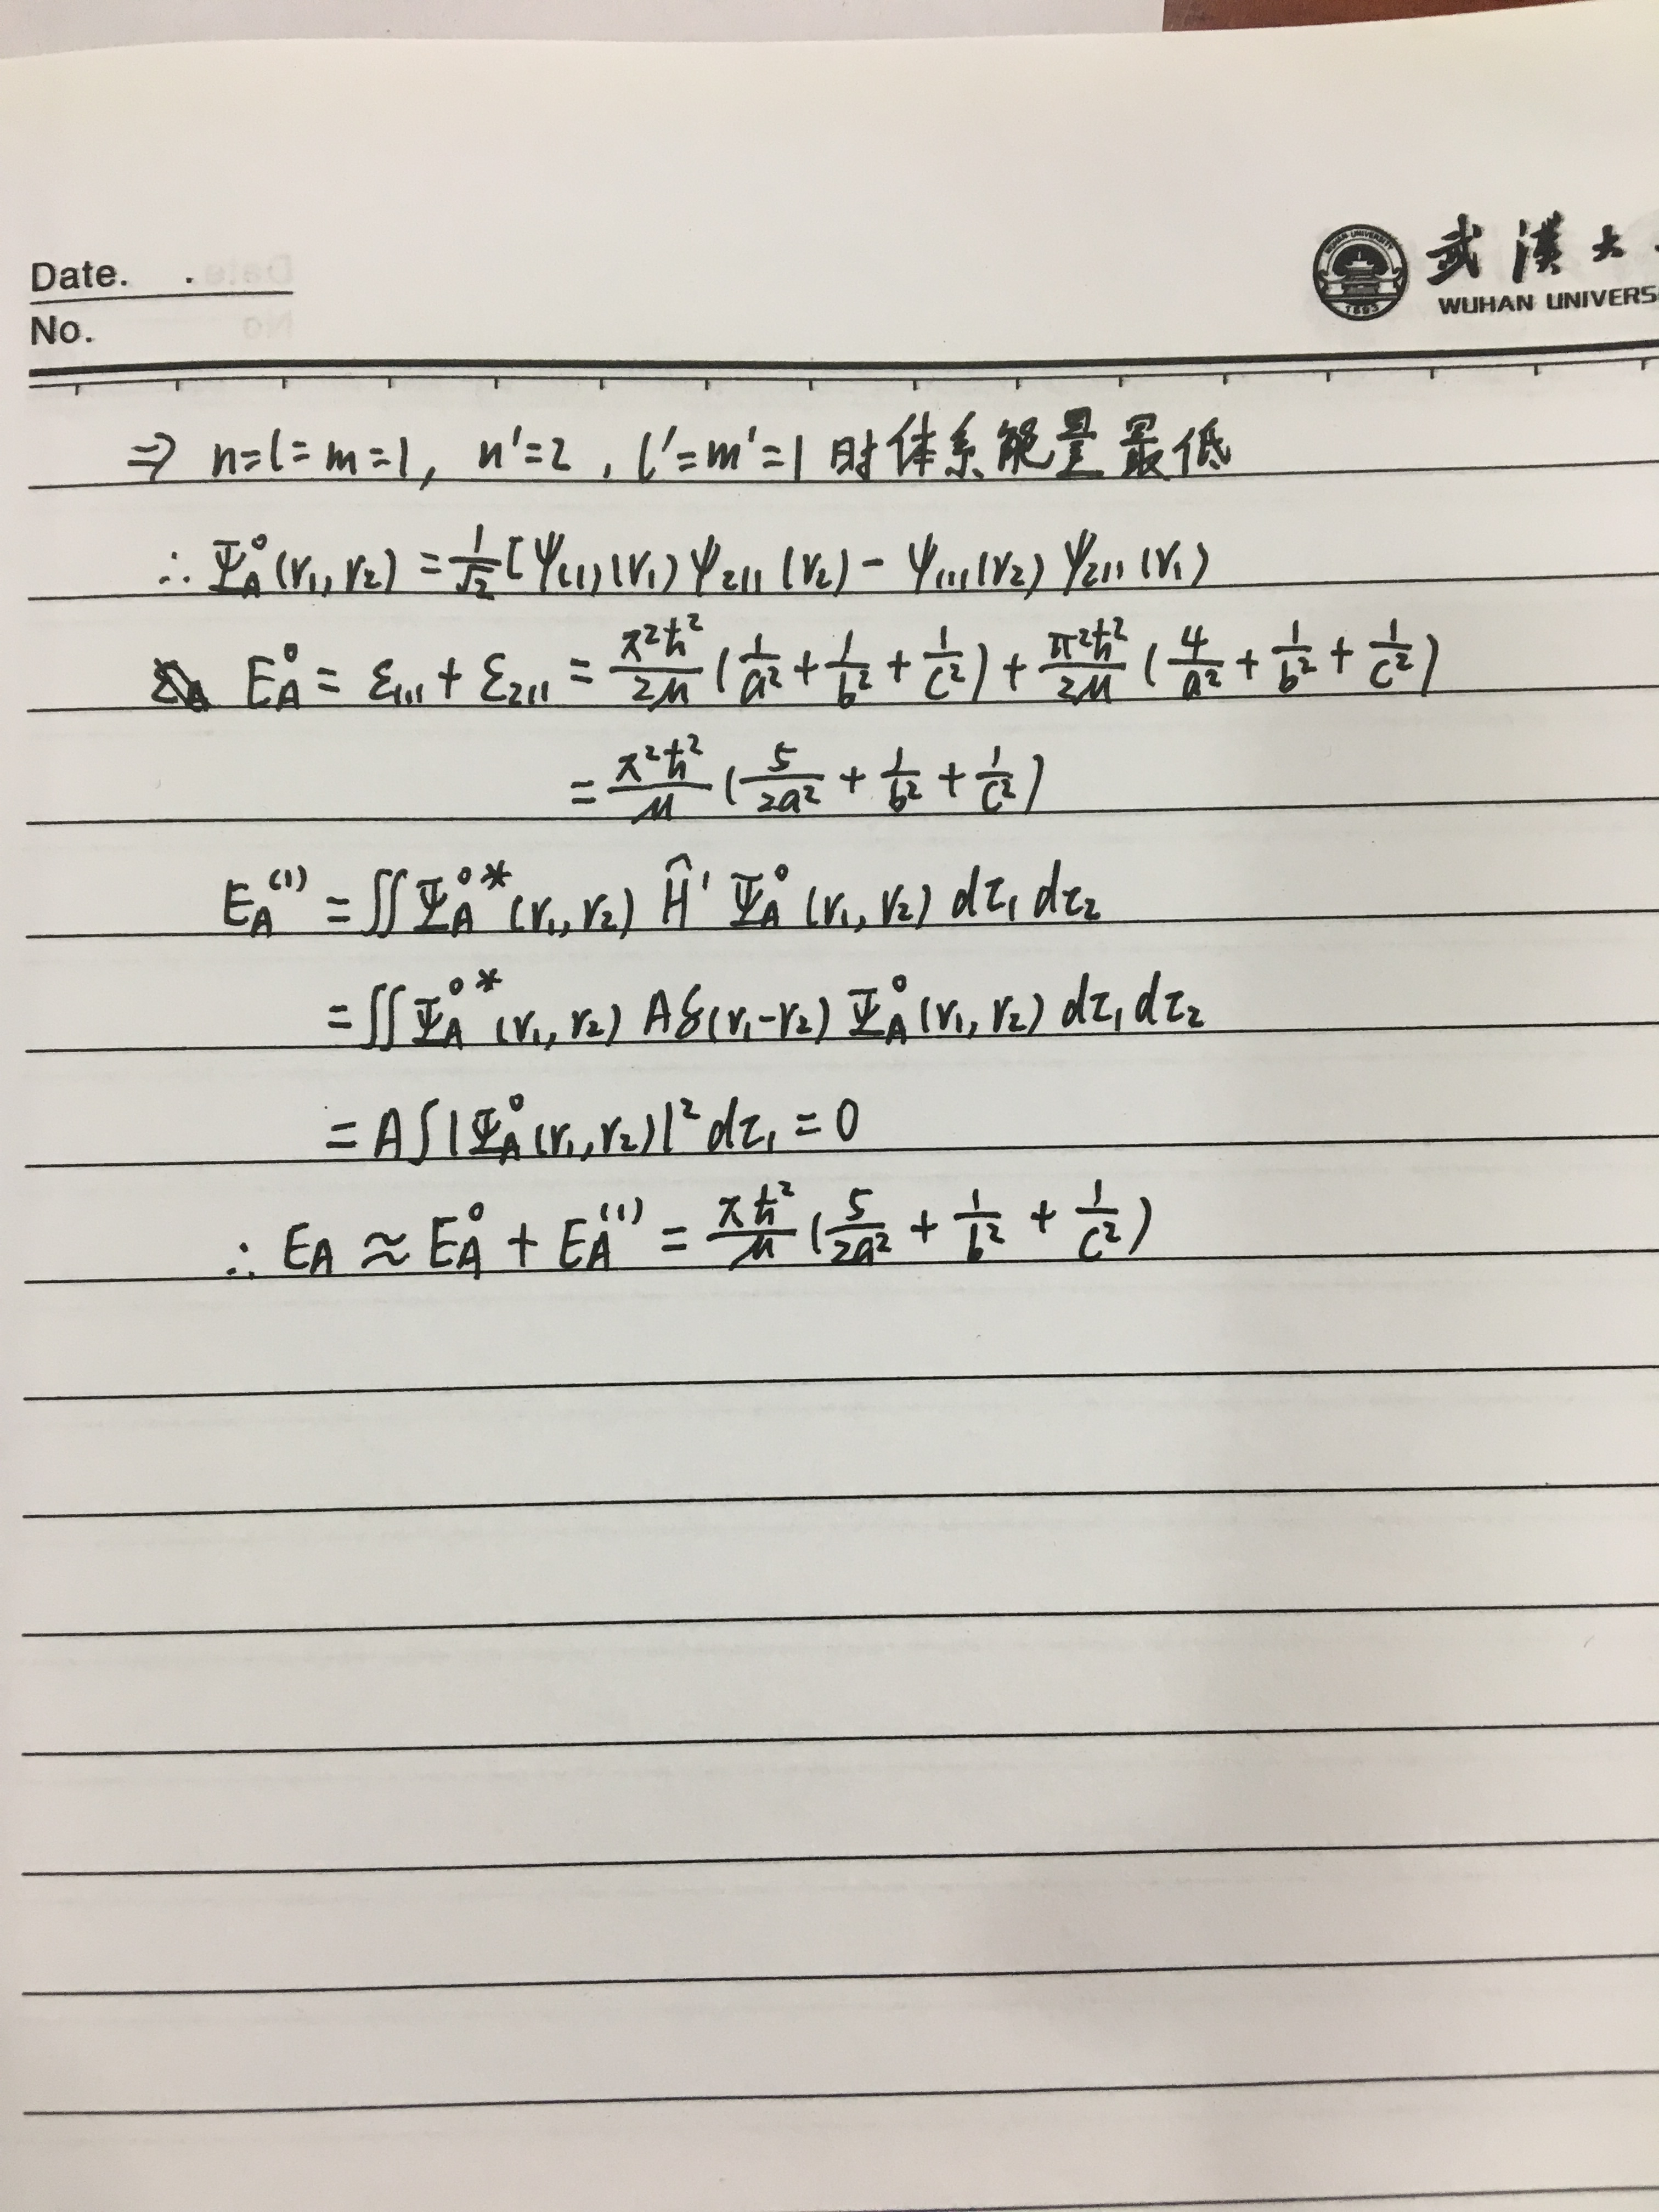 Date. .
No.
武漢大
WUHAN UNIVERS
⇒ n=l=m=1, n'=2, l'=m'=1 时体系能量最低
∴ Ψ_A^0(r₁, r₂) = 1/√2 [ψ₁₁₁(r₁) ψ₂₁₁(r₂) - ψ₁₁₁(r₂) ψ₂₁₁(r₁)
E_A^0 = ε₁₁₁ + ε₂₁₁ = π²ħ²/2μ (1/a² + 1/b² + 1/c²) + π²ħ²/2μ (4/a² + 1/b² + 1/c²)
= π²ħ²/μ (5/2a² + 1/b² + 1/c²)
E_A^(1) = ∬ Ψ_A^0*(r₁, r₂) Ĥ' Ψ_A^0(r₁, r₂) dτ₁ dτ₂
= ∬ Ψ_A^0*(r₁, r₂) Aδ(r₁-r₂) Ψ_A^0(r₁, r₂) dτ₁ dτ₂
= A∫|Ψ_A^0(r₁, r₂)|² dτ₁ = 0
∴ E_A ≈ E_A^0 + E_A^(1) = πħ²/μ (5/2a² + 1/b² + 1/c²)